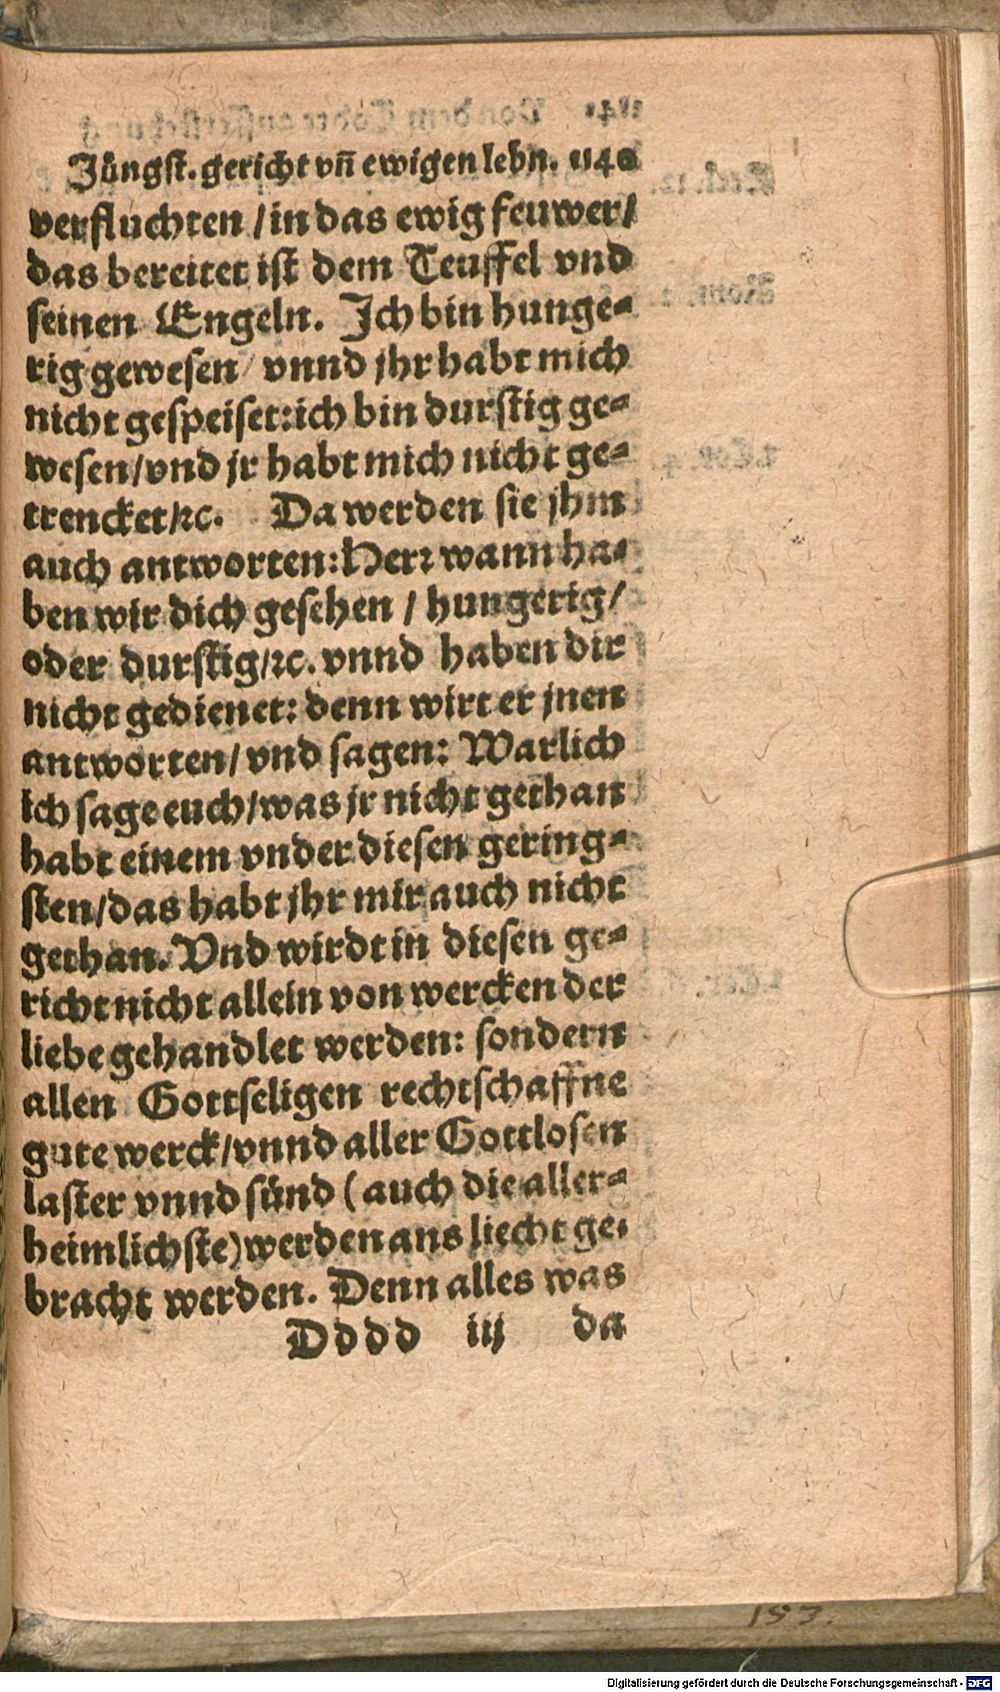 Jüngst. gericht vñ ewigen lebn. 1140
verfluchten / in das ewig feuwer /
das bereitet ist dem Teuffel vnd
seinen Engeln. Ich bin hunge⸗
rig gewesen / vnnd jhr habt mich
nicht gespeiset: ich bin durstig ge⸗
wesen / vnd jr habt mich nicht ge⸗
trencket / ꝛc. Da werden sie jhm
auch antworten: Herꝛ wann ha⸗
ben wir dich gesehen / hungerig /
oder durstig / ꝛc. vnnd haben dir
nicht gedienet: denn wirt er jnen
antworten / vnd sagen: Warlich
ich sage euch / was jr nicht gethan
habt einem vnder diesen gering⸗
sten / das habt jhr mir auch nicht
gethan. Vnd wirdt in diesen ge⸗
richt nicht allein von wercken der
liebe gehandlet werden: sondern
allen Gottseligen rechtschaffne
gute werck / vnnd aller Gottlosen
laster vnnd sünd (auch die aller⸗
heimlichste) werden ans liecht ge⸗
bracht werden. Denn alles was
Dddd iij da
153.
Digitalisierung gefördert durch die Deutsche Forschungsgemeinschaft - DFG